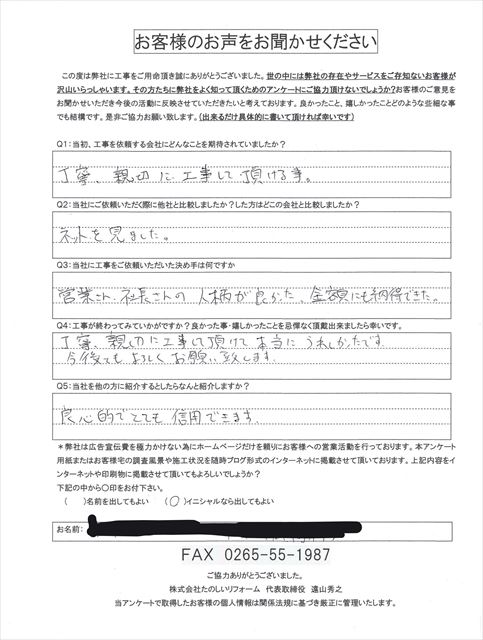 お客様のお声をお聞かせください
この度は弊社に工事をご用命頂き誠にありがとうございました。世の中には弊社の存在やサービスをご存知ないお客様が
沢山いらっしゃいます。その方たちに弊社をよく知って頂くためのアンケートにご協力頂けないでしょうか?お客様のご意見を
お聞かせいただき今後の活動に反映させていただきたいと考えております。良かったこと、嬉しかったことどのような些細な事
でも結構です。是非ご協力お願い致します。(出来るだけ具体的に書いて頂ければ幸いです)
Q1:当初、工事を依頼する会社にどんなことを期待されていましたか?
丁寧、親切に工事して頂ける事。
Q2:当社にご依頼いただく際に他社と比較しましたか?した方はどこの会社と比較しましたか?
ネットを見ました。
Q3:当社に工事をご依頼いただいた決め手は何ですか
営業さん、社長さんの人柄が良かった、金額にも納得できた。
Q4:工事が終わってみていかがですか?良かった事・嬉しかったことを忌憚なく頂戴出来ましたら幸いです。
丁寧、親切に工事して頂けて本当にうれしかたです
今後ともよろしくお願い致します。
Q5:当社を他の方に紹介するとしたらなんと紹介しますか?
良心的でとても信用できます。
*弊社は広告宣伝費を極力かけない為にホームページだけを頼りにお客様への営業活動を行っております。本アンケート
用紙またはお客様宅の調査風景や施工状況を随時ブログ形式のインターネットに掲載させて頂いております。上記内容をイ
ンターネットや印刷物に掲載させて頂いてもよろしいでしょうか?
下記の中から〇印をお付下さい。
( )名前を出してもよい (〇)イニシャルなら出してもよい
お名前:
FAX 0265-55-1987
ご協力ありがとうございました。
株式会社たのしいリフォーム 代表取締役 遠山秀之
当アンケートで取得したお客様の個人情報は関係法規に基づき厳正に管理いたします。